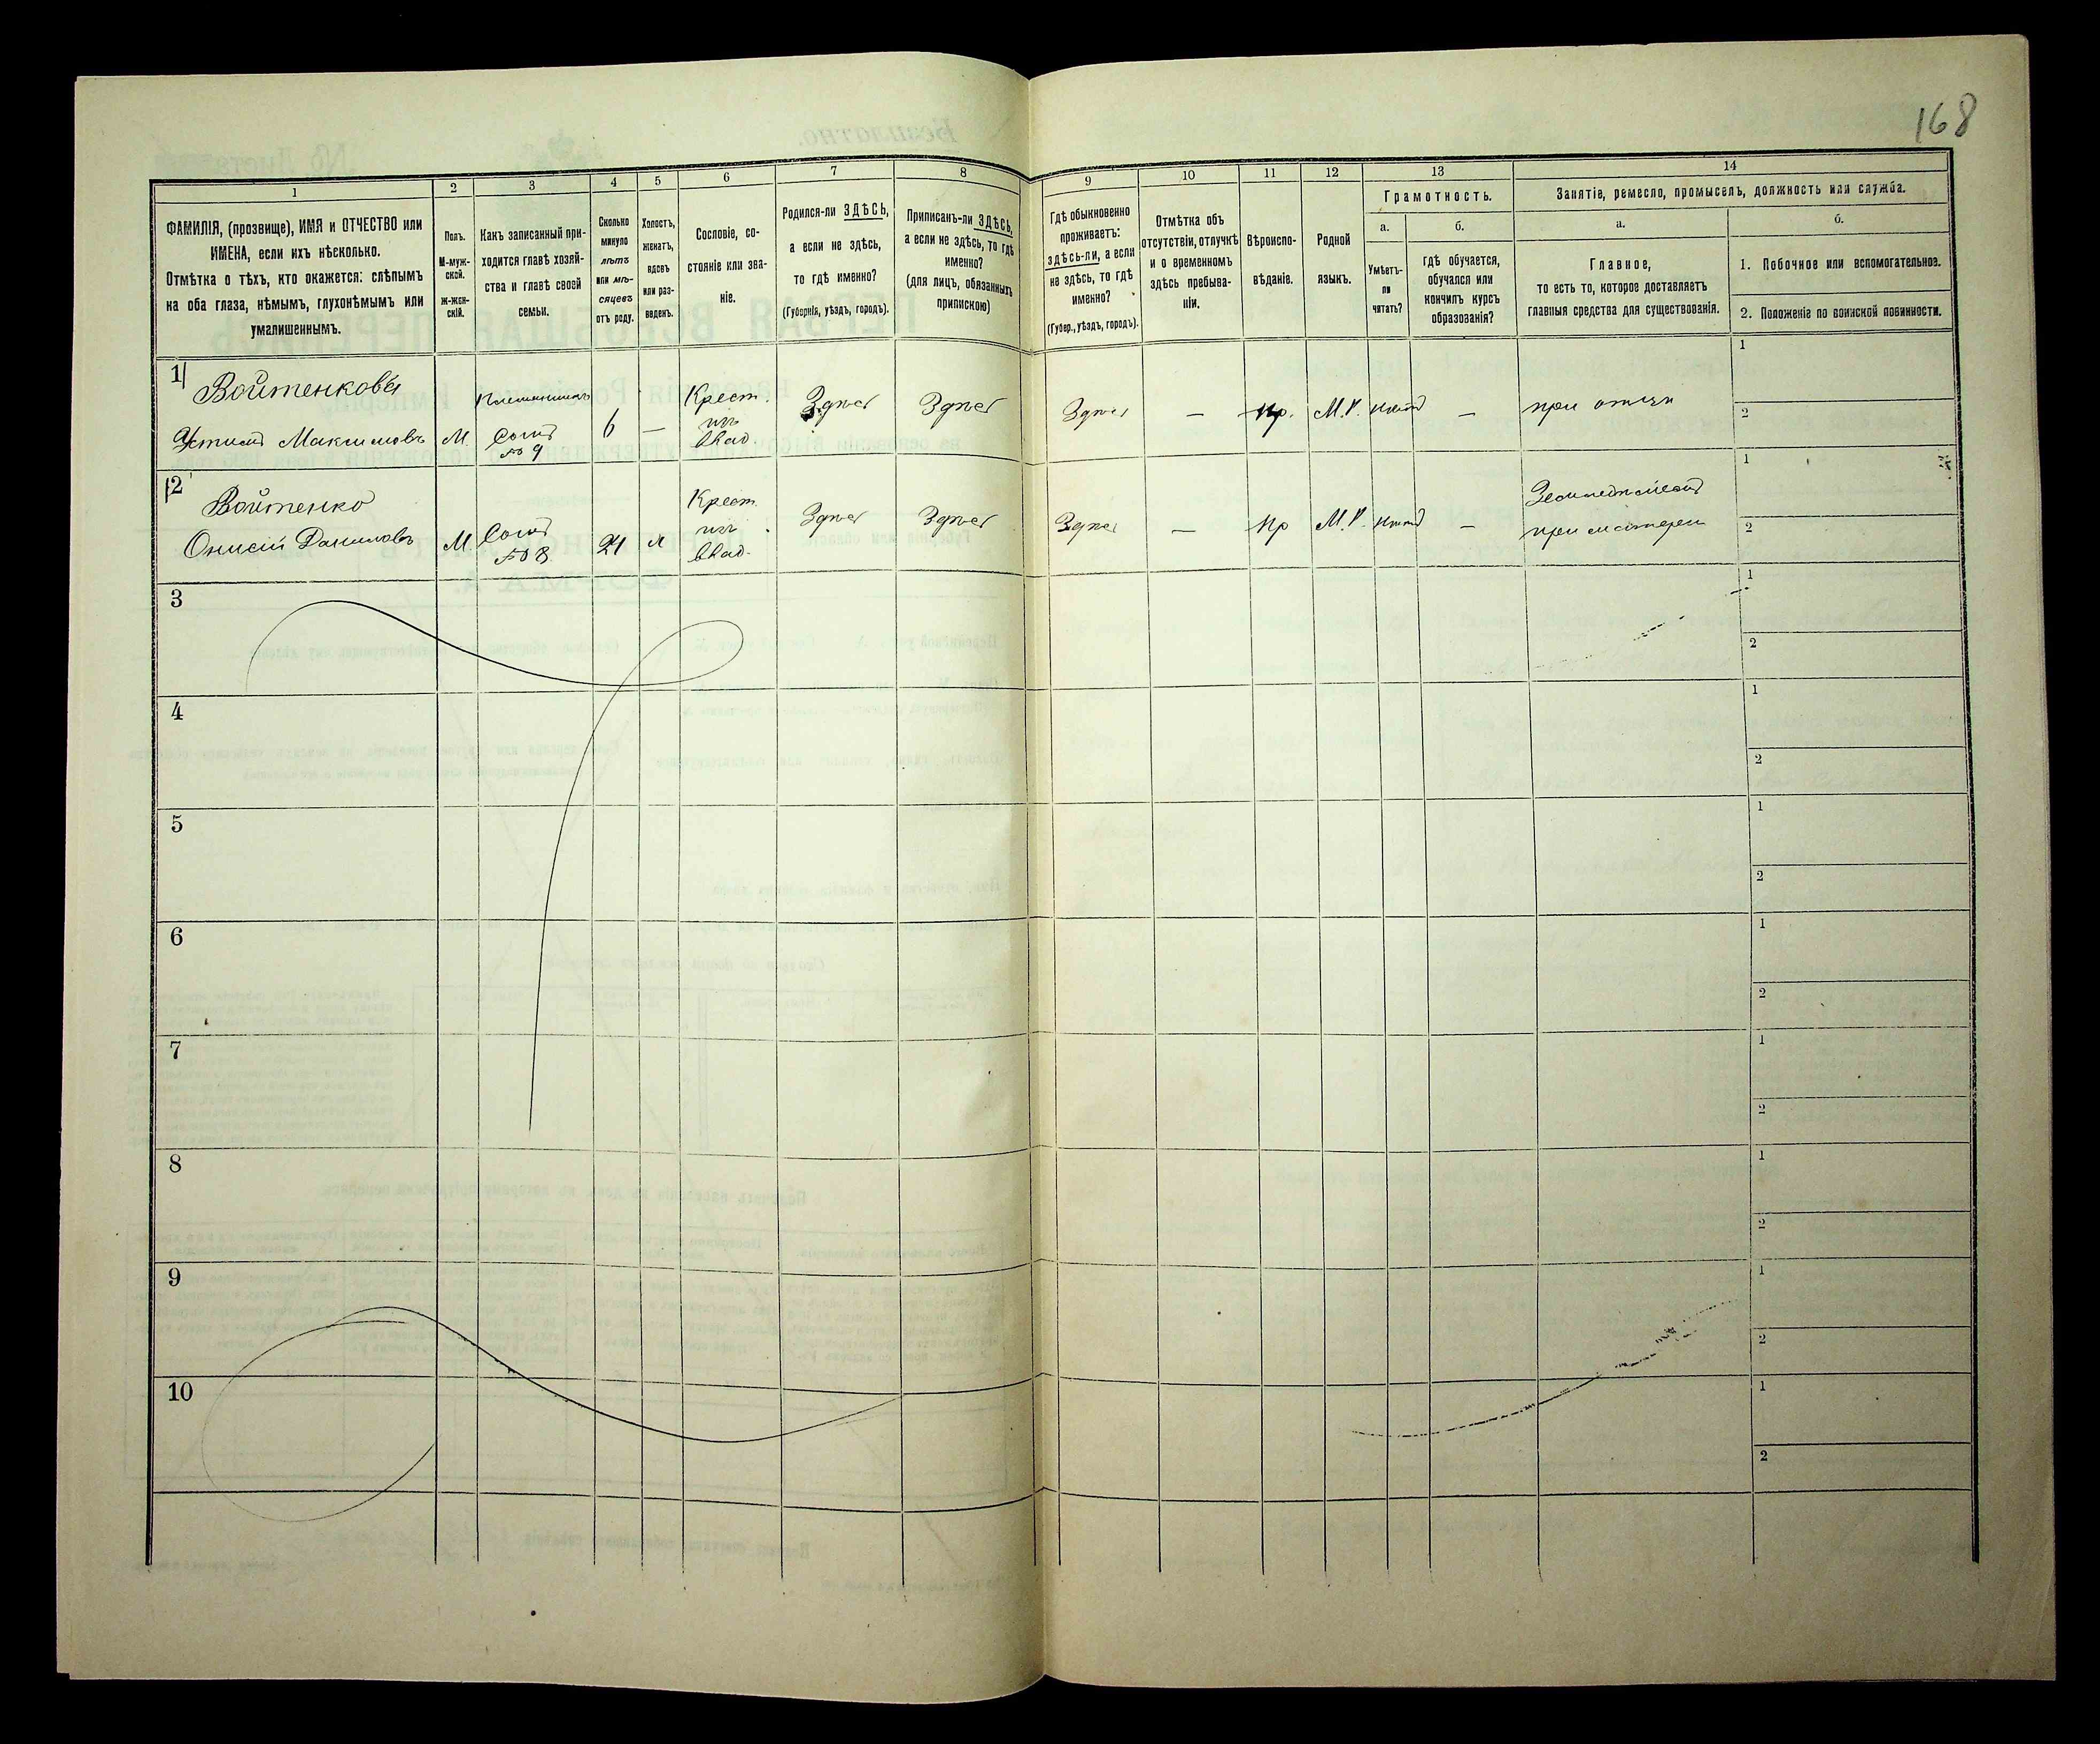 168
1
2
3
4
5
6
7
8
ФАМИЛІЯ, (прозвище), ИМЯ и ОТЧЕСТВО или
ИМЕНА, если ихъ нѣсколько.
Отмѣтка о тѣхъ, кто окажется: слѣпымъ
на оба глаза, нѣмымъ, глухонѣмымъ или
умалишеннымъ.
Полъ.
М-муж-
ской.
Ж-жен-
скій.
Какъ записанный при-
ходится главѣ хозяй-
ства и главѣ своей
семьи.
Сколько
минуло
лѣтъ
или мѣ-
сяцевъ
отъ роду.
Холостъ,
женатъ,
вдовъ
или раз-
веденъ.
Сословіе, со-
стояніе или зва-
ніе.
Родился-ли ЗДѢСЬ,
а если не здѣсь,
то гдѣ именно?
(Губернія, уѣздъ, городъ).
Приписанъ-ли ЗДѢСЬ,
а если не здѣсь, то гдѣ
именно?
(для лицъ, обязанныхъ
припискою)
9
10
11
12
13
14
Гдѣ обыкновенно
проживаетъ:
здѣсь-ли, а если
не здѣсь, то гдѣ
именно?
(Губер., уѣздъ, городъ).
Отмѣтка объ
отсутствіи, отлучкѣ
и о временномъ
здѣсь пребыва-
ніи.
Вѣроиспо-
вѣданіе.
Родной
языкъ.
Грамотность.
а.
б.
Умѣетъ-
ли
читать?
гдѣ обучается,
обучался или
кончилъ курсъ
образованія?
Занятіе, ремесло, промыселъ, должность или служба.
а.
б.
Главное,
то есть то, которое доставляетъ
главныя средства для существованія.
1. Побочное или вспомогательное.
2. Положеніе по воинской повинности.
1
Войтенковъ
Устимъ Максимовъ М. 6 — Крест. изъ влад. Здѣсь Здѣсь Здѣсь — пр. М.Р. нѣтъ — при отцѣ
1
2
2
Войтенко
Онисій Даниловъ М. 21 Крест. изъ влад. Здѣсь Здѣсь Здѣсь — пр М.Р. нѣтъ —
при матери
1
2
3
1
2
4
1
2
5
1
2
6
1
2
7
1
2
8
1
2
9
1
2
10
1
2